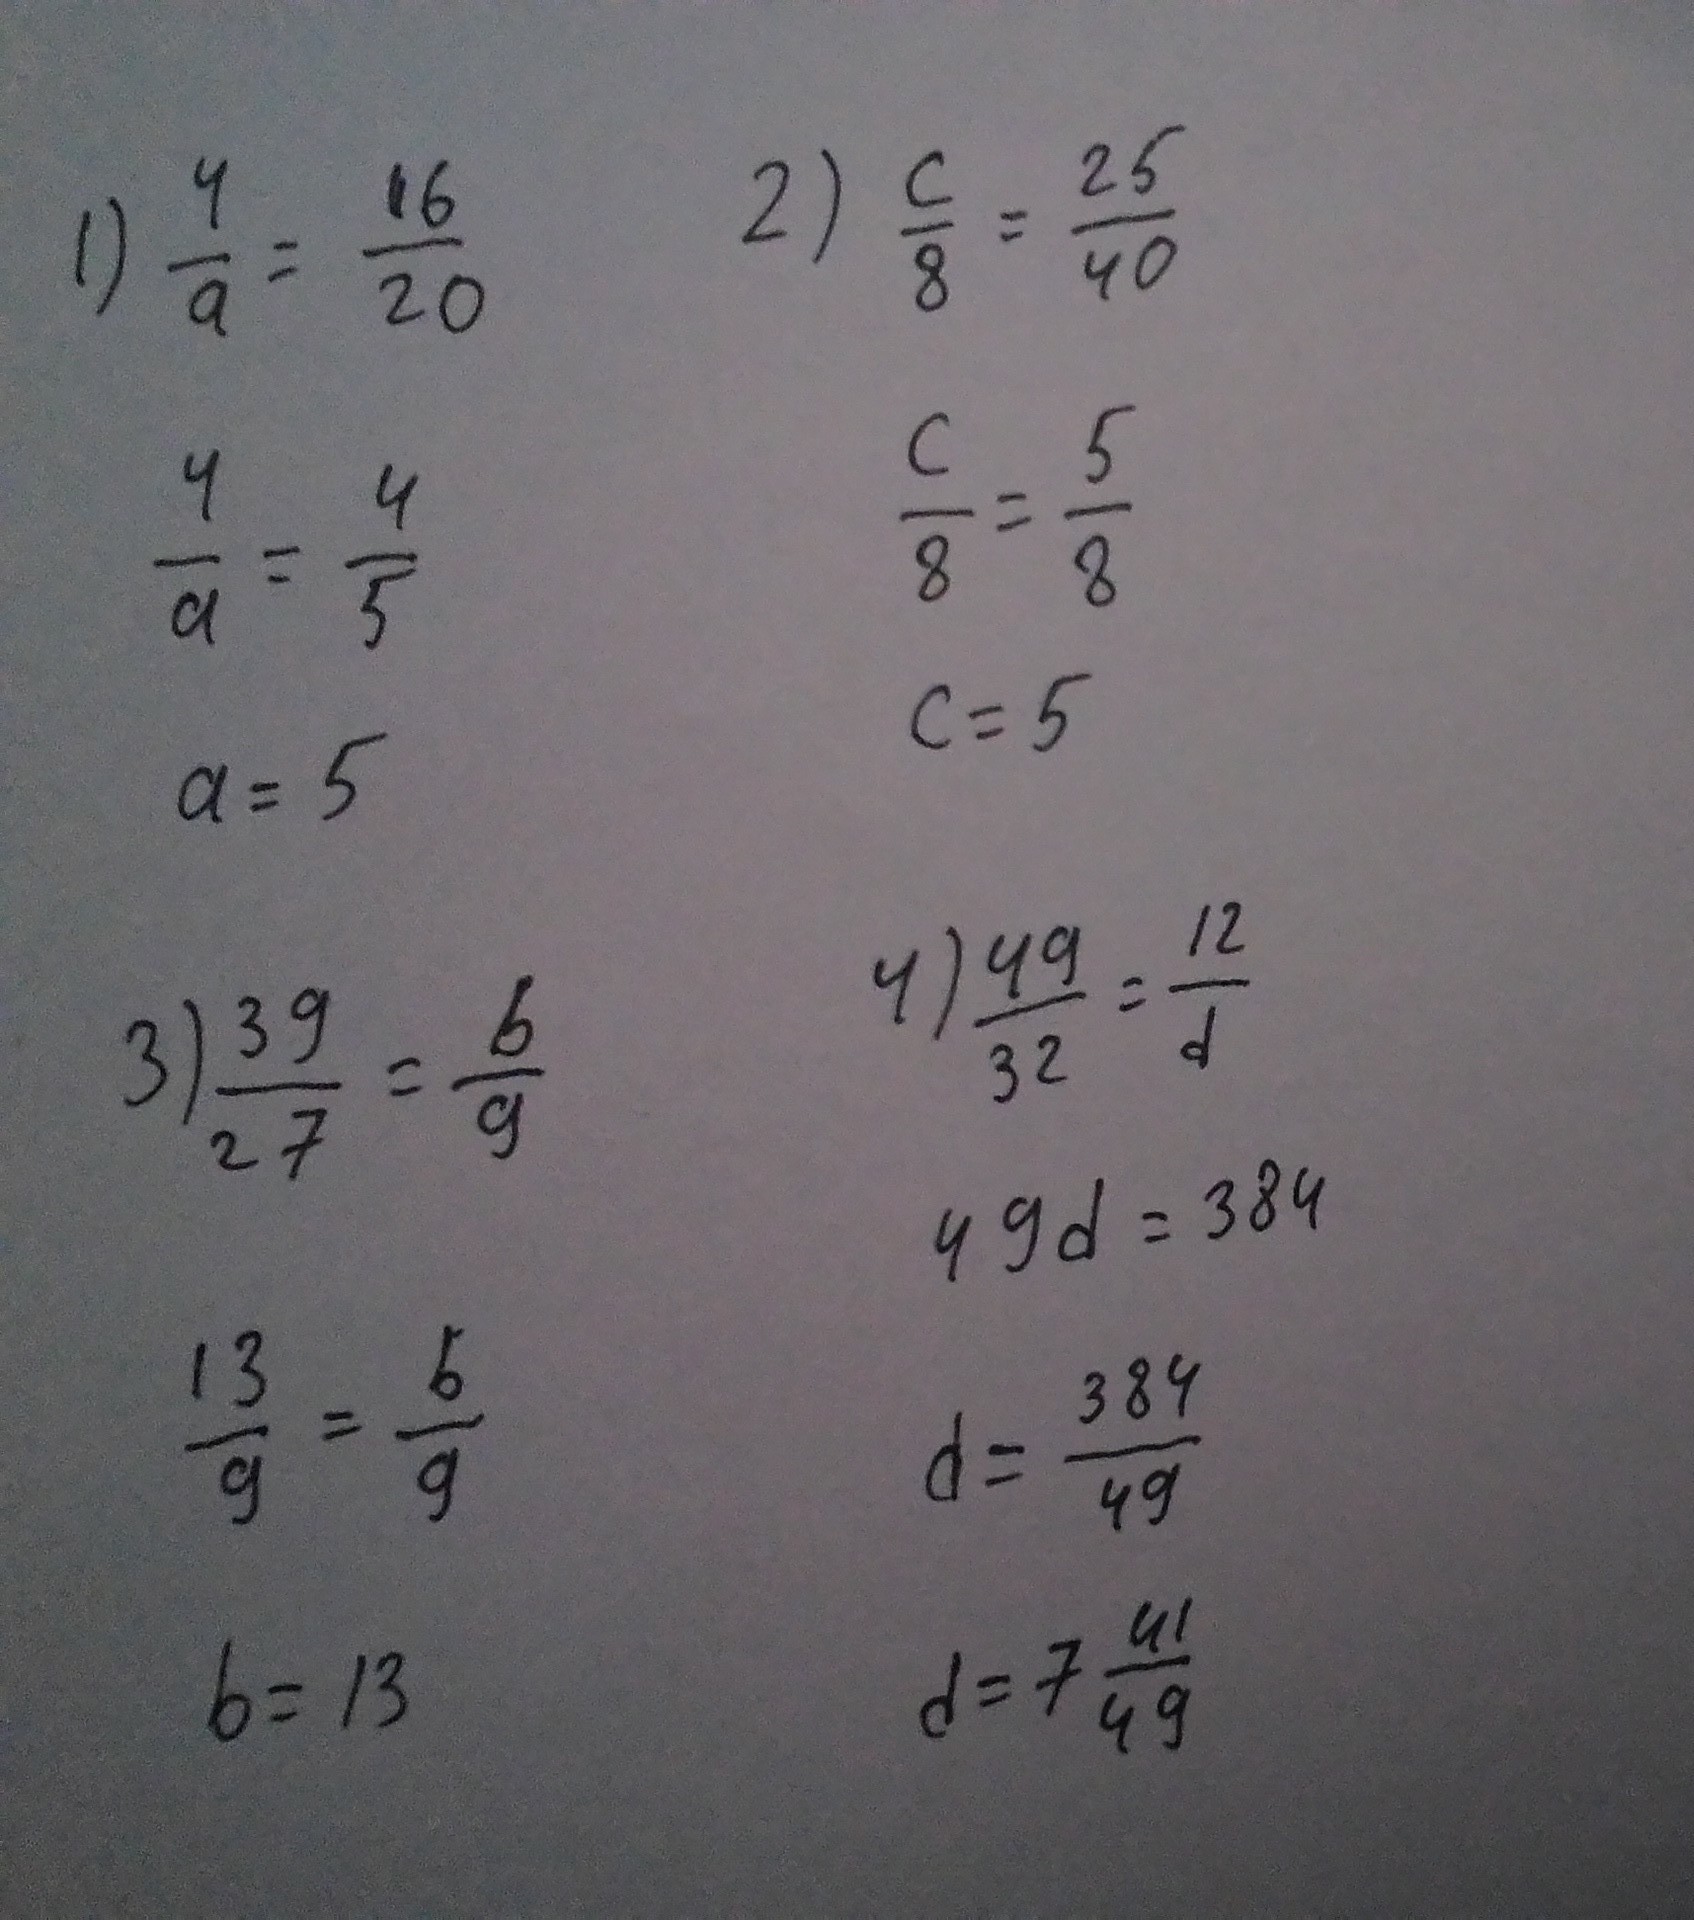 1) 4/a = 16/20
4/a = 4/5
a = 5
2) c/8 = 25/40
c/8 = 5/8
c = 5
3) 39/27 = b/9
13/9 = b/9
b = 13
4) 49/32 = 12/d
49d = 384
d = 384/49
d = 7 41/49